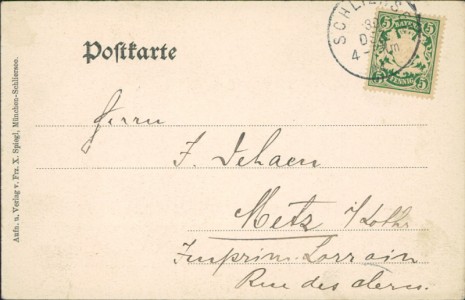 SCHLIERS
5 BAYERN 5
5 PFENNIG 5
Postkarte
Herrn
F. Dehaen
Metz i/Lothr
Imprim. Lorrain
Rue des
Aufn. u. Verlag v. Frz. X. Spiegl, München-Schliersee.